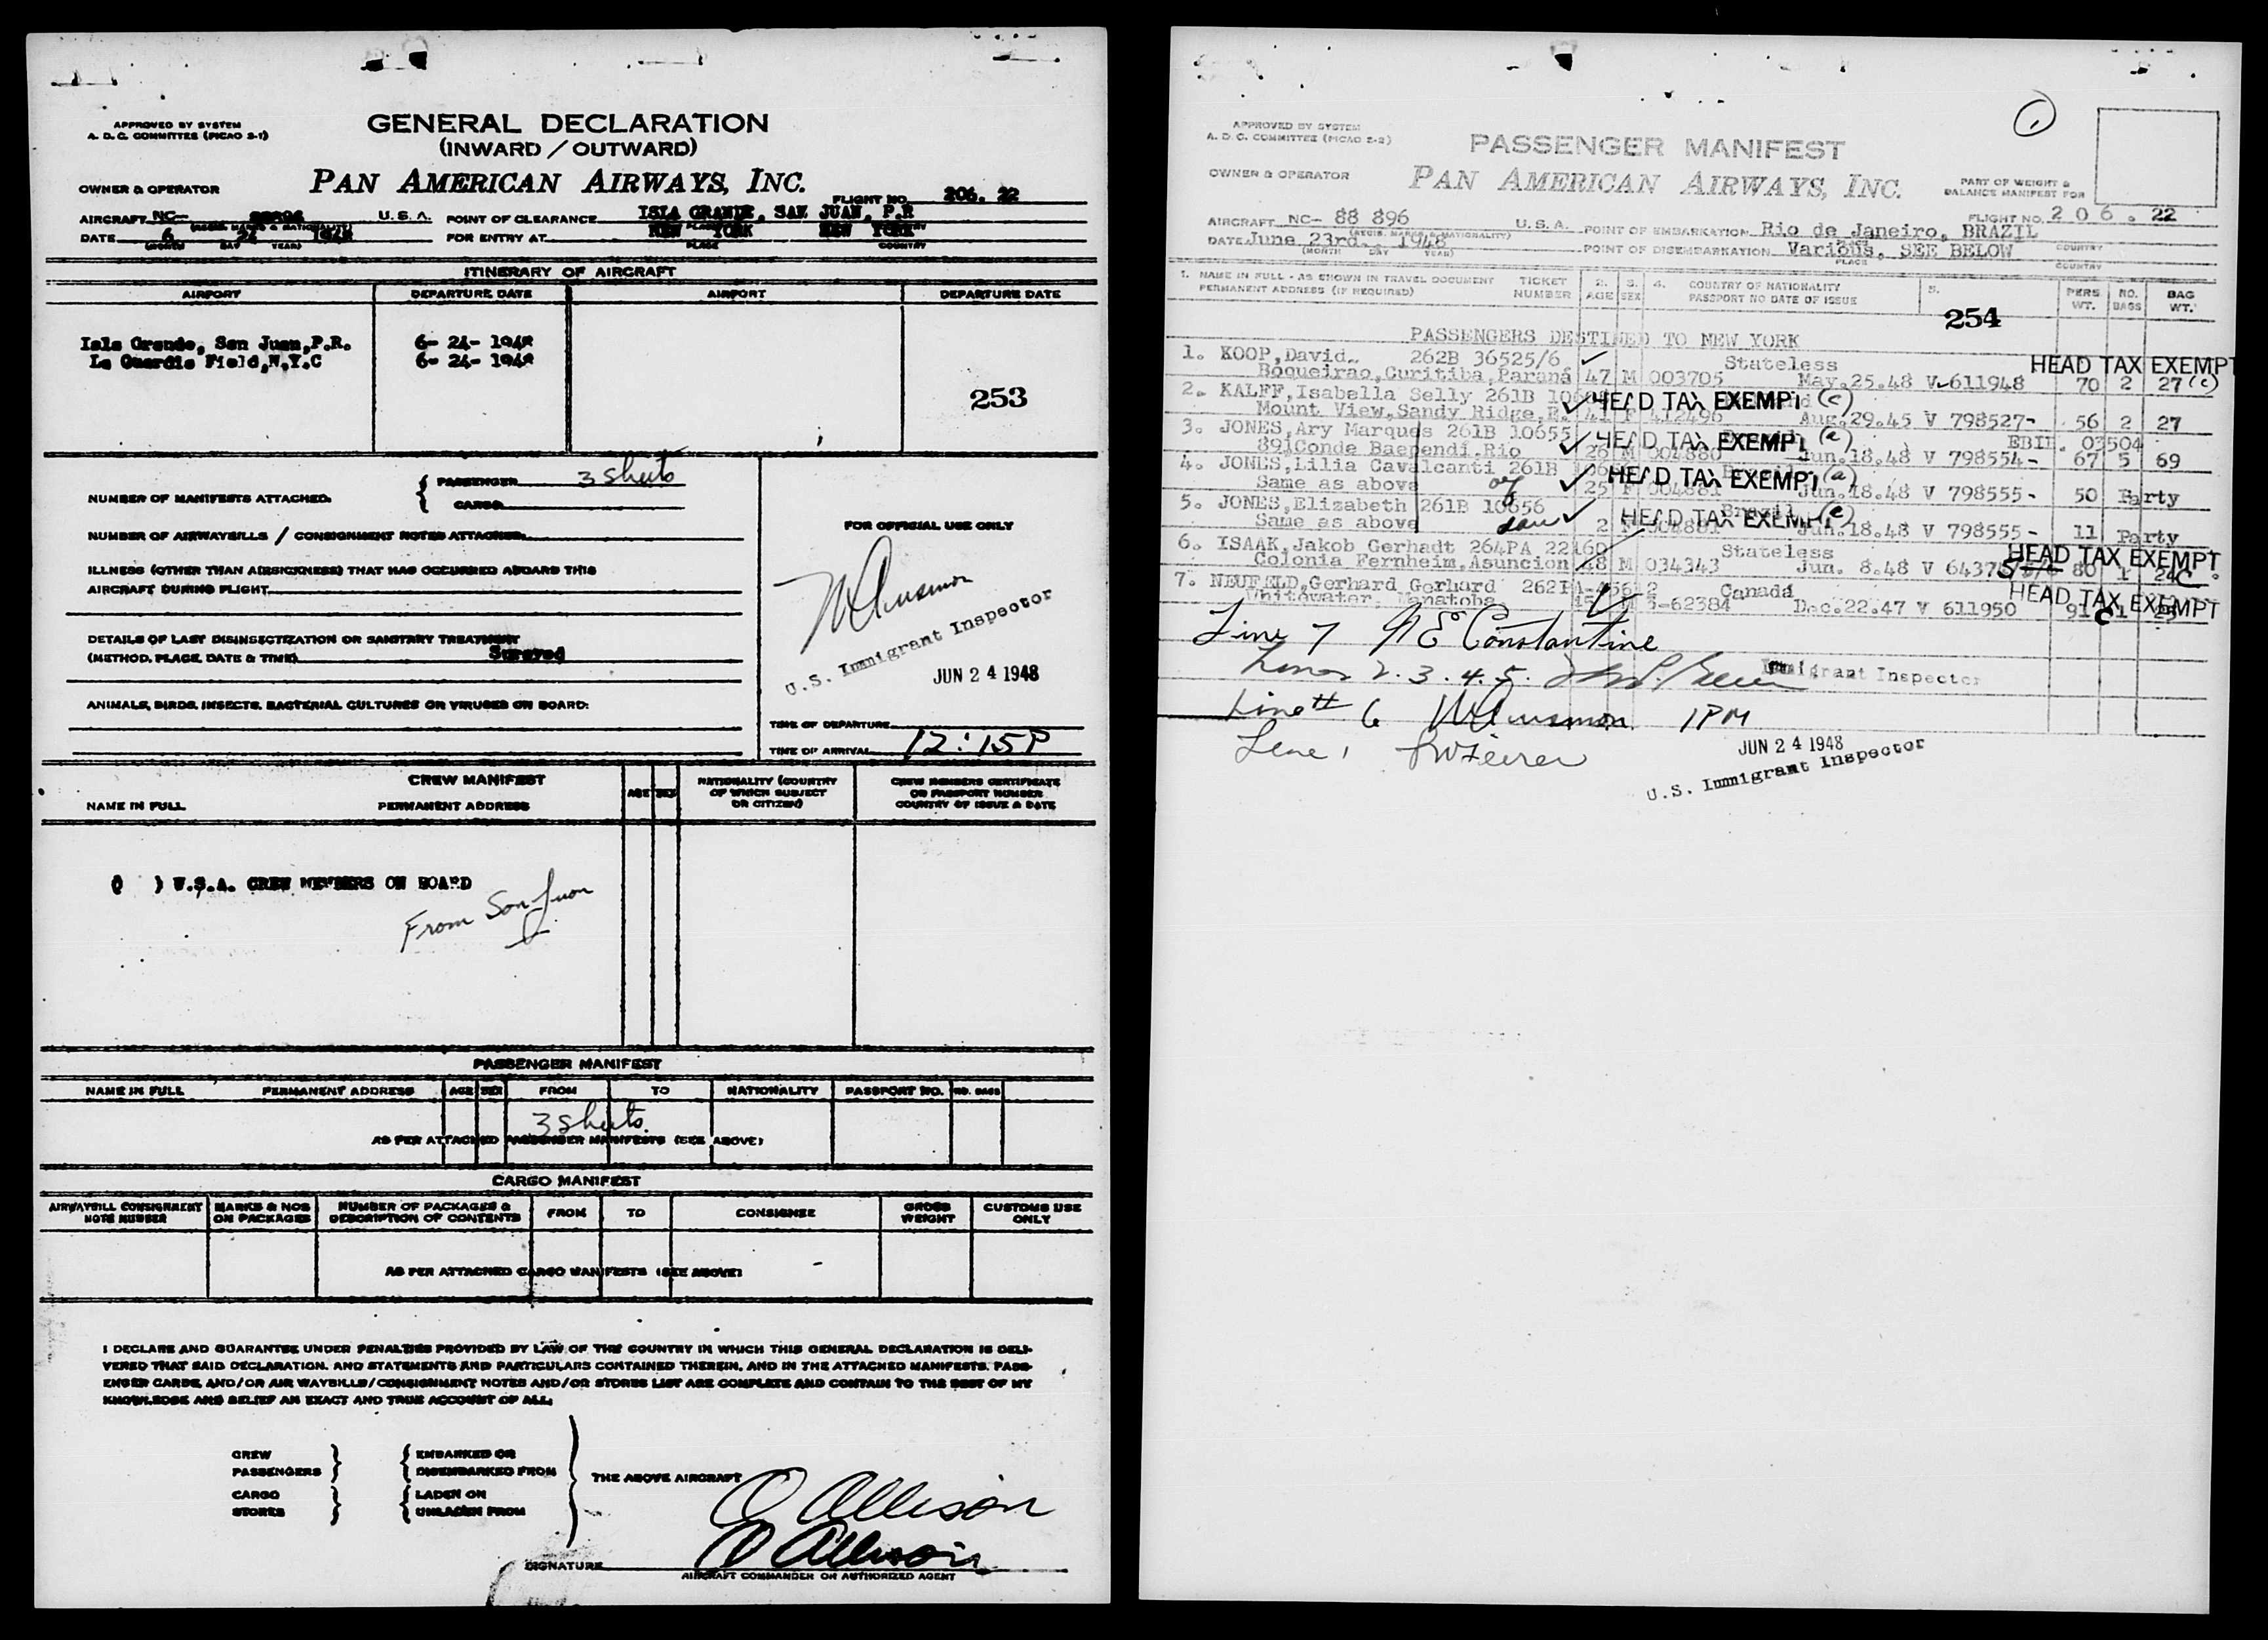 APPROVED BY SYSTEM
A. D. C. COMMITTEE (PICAO 2-1)
GENERAL DECLARATION
(INWARD / OUTWARD)
OWNER & OPERATOR
PAN AMERICAN AIRWAYS, INC.
FLIGHT NO. 206. 22
AIRCRAFT NC- U. S. A. POINT OF CLEARANCE ISLA GRANDE, SAN JUAN, P.R
DATE 6 24 1948 FOR ENTRY AT NEW YORK NEW YORK
(MONTH DAY YEAR) PLACE COUNTRY
ITINERARY OF AIRCRAFT
AIRPORT DEPARTURE DATE AIRPORT DEPARTURE DATE
Isla Grande, San Juan, P.R. 6- 24- 1948
La Guardia Field, N.Y.C 6- 24- 1948
253
NUMBER OF MANIFESTS ATTACHED. { PASSENGER 3 sheets
CARGO
NUMBER OF AIRWAYBILLS / CONSIGNMENT NOTES ATTACHED
ILLNESS (OTHER THAN AIRSICKNESS) THAT HAS OCCURRED ABOARD THIS
AIRCRAFT DURING FLIGHT
DETAILS OF LAST DISINSECTIZATION OR SANITARY TREATMENT
(METHOD, PLACE, DATE & TIME) Sprayed
ANIMALS, BIRDS, INSECTS, BACTERIAL CULTURES OR VIRUSES ON BOARD:
FOR OFFICIAL USE ONLY
U.S. Immigrant Inspector
JUN 24 1948
TIME OF DEPARTURE
TIME OF ARRIVAL 12:15P
CREW MANIFEST
NAME IN FULL PERMANENT ADDRESS AGE SEX NATIONALITY (COUNTRY OF WHICH SUBJECT OR CITIZEN) CREW MEMBERS CERTIFICATE OR PASSPORT NUMBER COUNTRY OF ISSUE & DATE
( ) U.S.A. CREW MEMBERS ON BOARD
From San Juan
PASSENGER MANIFEST
NAME IN FULL PERMANENT ADDRESS AGE SEX FROM TO NATIONALITY PASSPORT NO. NO. BAGS
3 sheets.
AS PER ATTACHED PASSENGER MANIFESTS (SEE ABOVE)
CARGO MANIFEST
AIRWAYBILL CONSIGNMENT NOTE NUMBER MARKS & NOS ON PACKAGES NUMBER OF PACKAGES & DESCRIPTION OF CONTENTS FROM TO CONSIGNEE GROSS WEIGHT CUSTOMS USE ONLY
AS PER ATTACHED CARGO MANIFESTS (SEE ABOVE)
I DECLARE AND GUARANTEE UNDER PENALTIES PROVIDED BY LAW OF THE COUNTRY IN WHICH THIS GENERAL DECLARATION IS DELI-
VERED THAT SAID DECLARATION, AND STATEMENTS AND PARTICULARS CONTAINED THEREIN, AND IN THE ATTACHED MANIFESTS, PASS-
ENGER CARDS, AND/OR AIR WAYBILLS/CONSIGNMENT NOTES AND/OR STORES LIST ARE COMPLETE AND CONTAIN TO THE BEST OF MY
KNOWLEDGE AND BELIEF AN EXACT AND TRUE ACCOUNT OF ALL:
CREW EMBARKED OR
PASSENGERS DISEMBARKED FROM
THE ABOVE AIRCRAFT
CARGO LADEN ON
STORES UNLADEN FROM
O Allison
O Allison
SIGNATURE
AIRCRAFT COMMANDER OR AUTHORIZED AGENT
1
APPROVED BY SYSTEM
A. D. C. COMMITTEE (PICAO 2-2)
PASSENGER MANIFEST
OWNER & OPERATOR
PAN AMERICAN AIRWAYS, INC.
PART OF WEIGHT &
BALANCE MANIFEST FOR
FLIGHT NO. 206. 22
AIRCRAFT NC- 88 896 U. S. A. POINT OF EMBARKATION Rio de Janeiro, BRAZIL
(REGIS. MARKS & NATIONALITY)
DATE June 23rd., 1948 POINT OF DISEMBARKATION Various, SEE BELOW
(MONTH DAY YEAR) PLACE COUNTRY
1. NAME IN FULL - AS SHOWN IN TRAVEL DOCUMENT TICKET 2. 3. 4. COUNTRY OF NATIONALITY 5. PERS NO. BAG
PERMANENT ADDRESS (IF REQUIRED) NUMBER AGE SEX PASSPORT NO DATE OF ISSUE WT. BAGS WT.
254
PASSENGERS DESTINED TO NEW YORK
1. KOOP, David. 262B 36525/6 Stateless HEAD TAX EXEMPT
Boqueirao, Curitiba, Paraná 47 M 003705 May.25.48 V-611948 70 2 27 (c)
2. KALFF, Isabella Selly 261B HEAD TAX EXEMPT (c)
Mount View, Sandy Ridge, 41 F 412496 Aug.29.45 V 798527- 56 2 27
3. JONES, Ary Marques 261B 10655 HEAD TAX EXEMPT (a) 03504
891 Conde Baependi, Rio 26 M 004880 Jun.18.48 V 798554- 67 5 69
4. JONES, Lilia Cavalcanti 261B HEAD TAX EXEMPT (a)
Same as above 25 F 004881 Jun.18.48 V 798555- 50 Party
5. JONES, Elizabeth 261B 10656 Brazil HEAD TAX EXEMPT
Same as above dau 2 F 004881 Jun.18.48 V 798555- 11 Party
6. ISAAK, Jakob Gerhadt 264PA 22160 Stateless HEAD TAX EXEMPT
Colonia Fernheim, Asuncion 48 M 034343 Jun. 8.48 V 80 1 24 C
7. NEUFELD, Gerhard Gerhard Canada HEAD TAX EXEMPT
Whitewater, Manatoba 45 M 3-62384 Dec.22.47 V 611950 91 C 1
Line 7 N E Constantine
Lines 2. 3. 4. 5. Immigrant Inspector
Line # 6 1 PM
Line 1
JUN 24 1948
U.S. Immigrant Inspector